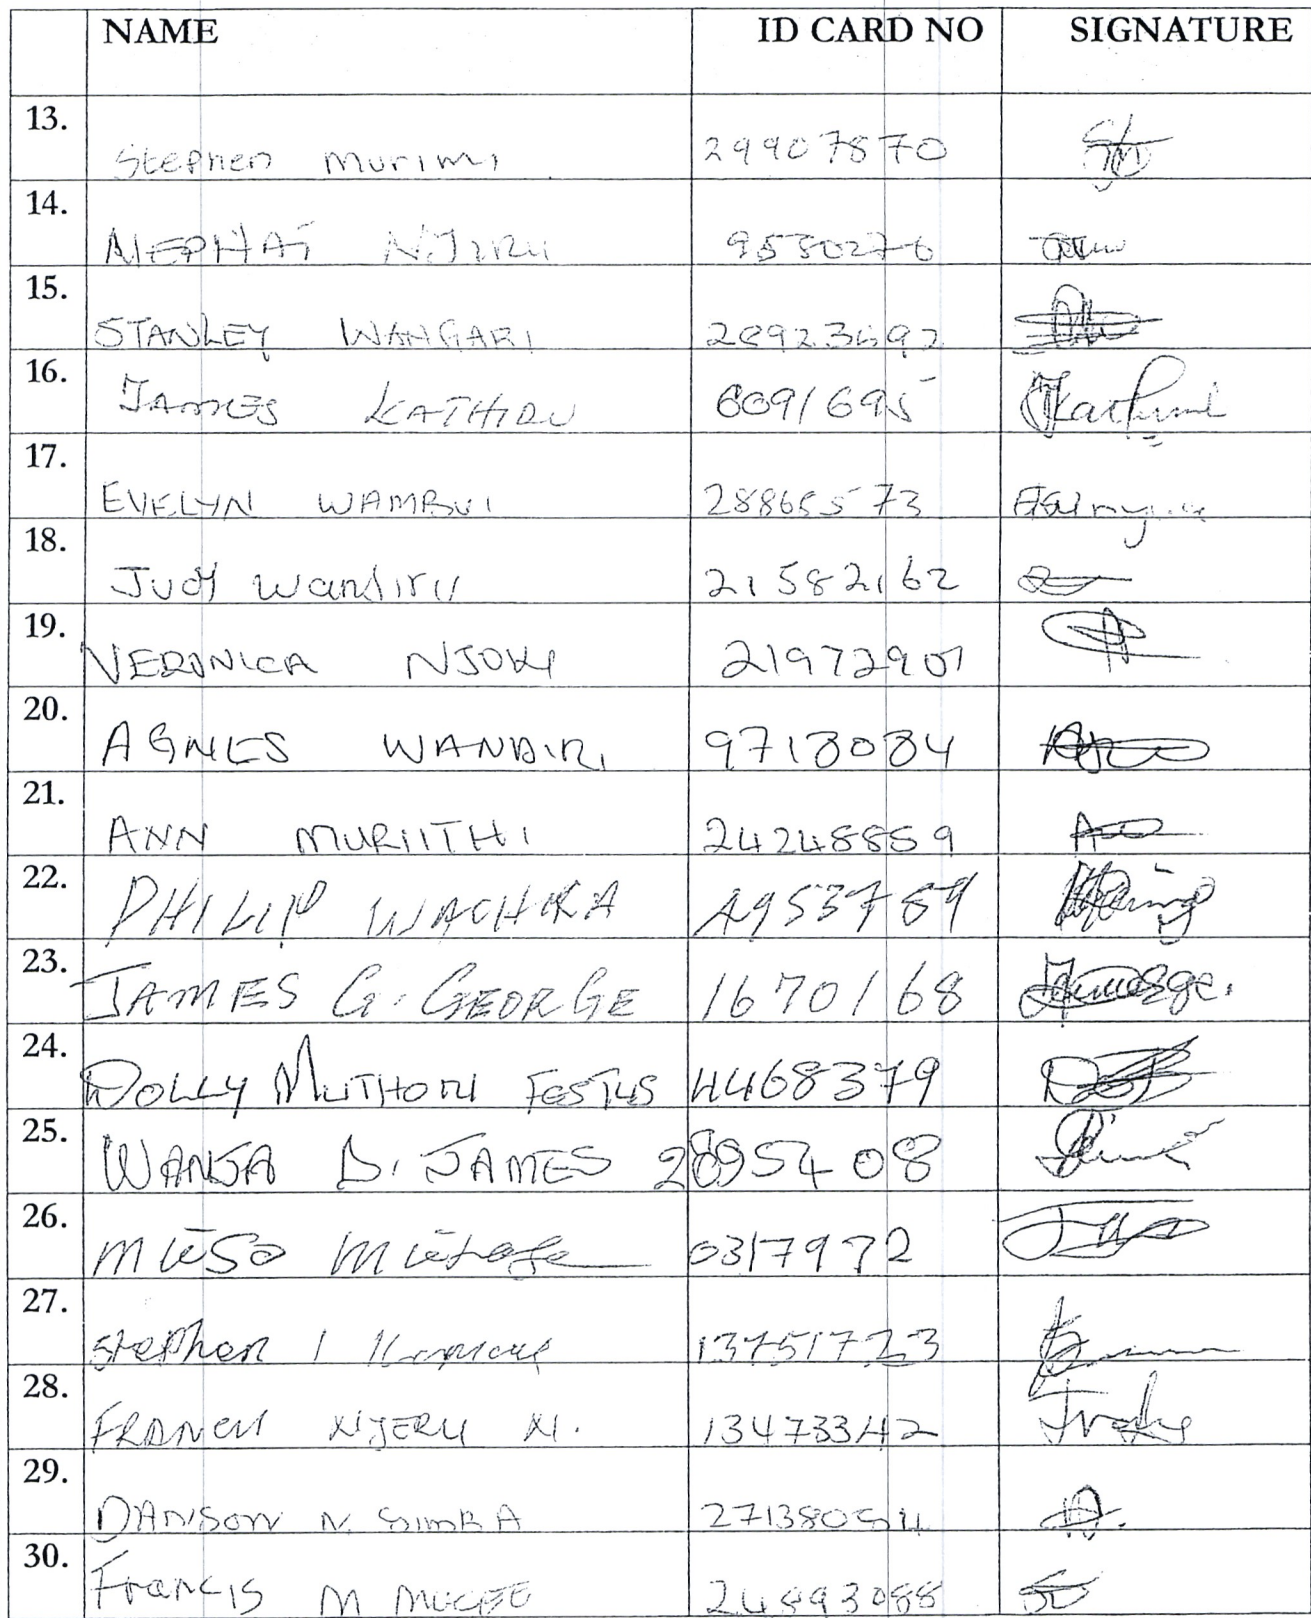 NAME ID CARD NO SIGNATURE
13. Stephen Murimi 29907870
14. NEPHAT NJIRU 9530276
15. STANLEY WANGARI
16. JAMES KATHIRU 6091695
17. EVELYN WAMBUI 28865573
18. Judy Wanjiru 21582162
19. VERONICA NJOKI 21972901
20. AGNES WANDIRI 9713034
21. ANN MURIITHI 24248859
22. PHILIP WACHIRA
23. JAMES G. GEORGE 1670168
24. DOLLY MUTHONI FESTUS 4468379
25. WANJA D. JAMES 2895408
26. 0317972
27. Stephen I 13751723
28. FRANCIS NJERU N. 13473342
29. DANISON N. SIMBA
30. Francis M 24893088